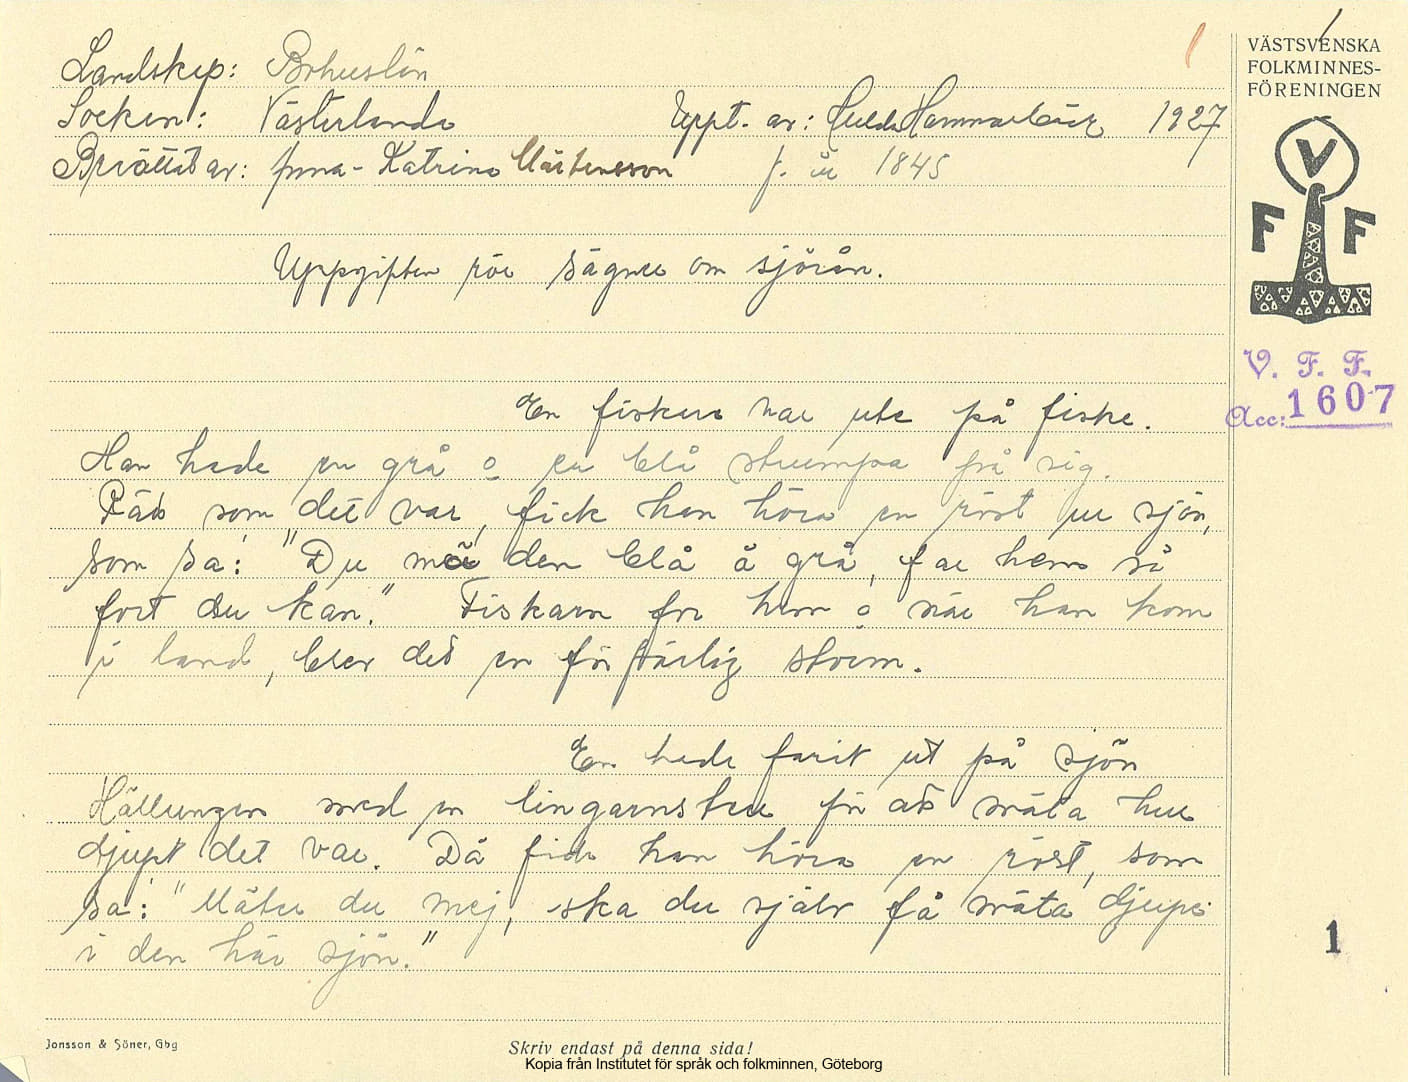 Landskap: Bohuslän
Socken: Västerlanda Uppt. av: Hulda Hammarbäck 1927
Berättat av: Anna-Katrina Mårtensson f. år 1845
Uppgiften rör sägner om sjörån.
En fiskare var ute på fiske.
Han hade en grå o en blå strumpa på sig.
Rätt som det var, fick han höra en röst ur sjön,
som sa: "Du mä den blå å grå, far hem så
fort du kan." Fiskarn for hem o när han kom
i land, blev det en förfärlig storm.
En hade farit ut på sjön
Hällungen med en lingarnstru för att mäta hur
djupt det var. Då fick han höra en röst, som
sa: "Mäter du mej, ska du själv få mäta djupe
i den här sjön."
VÄSTSVENSKA
FOLKMINNES-
FÖRENINGEN
V
F F
V. F. F.
Acc: 1607
1
Jonsson & Söner, Gbg
Skriv endast på denna sida!
Kopia från Institutet för språk och folkminnen, Göteborg